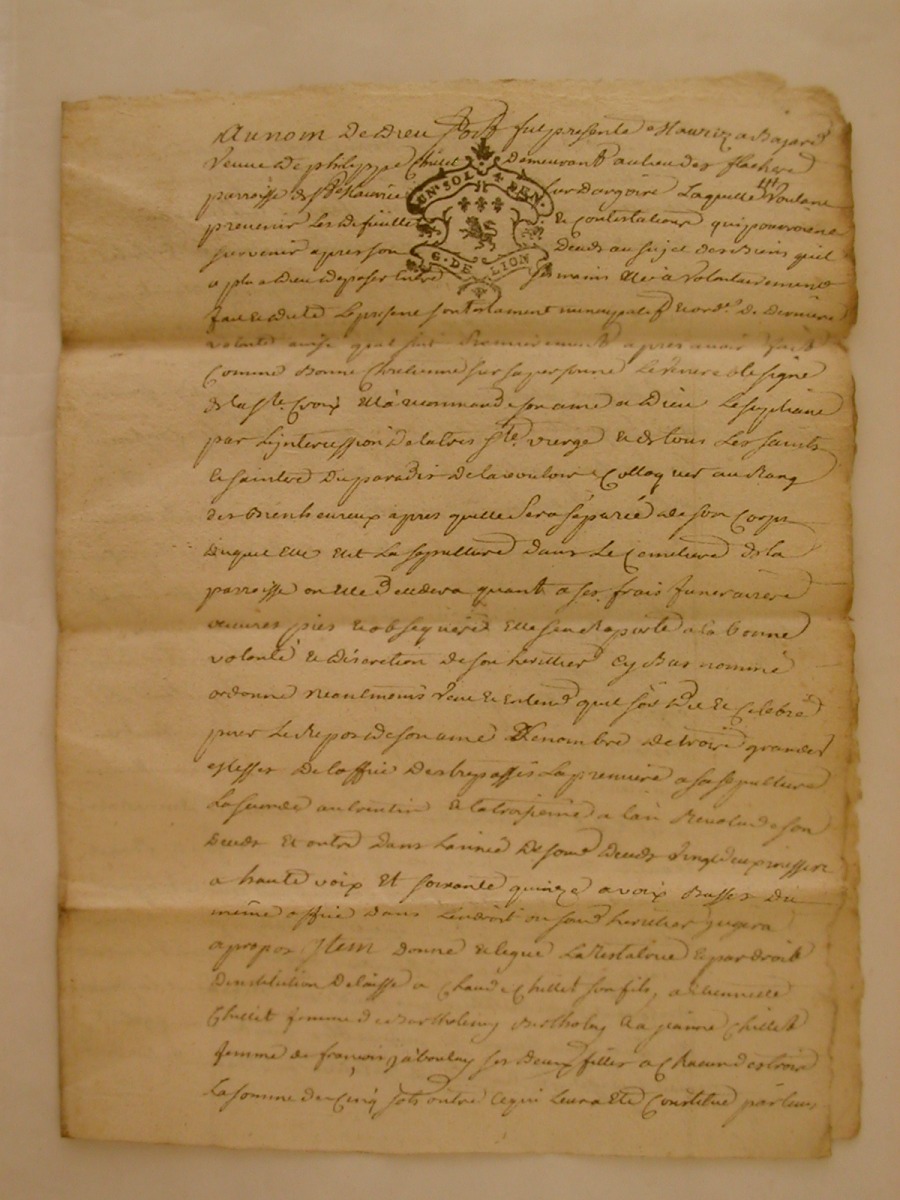 Au nom de Dieu soit fut presente Maurize Bajard
Veuve de philippe Chillet Demeurant au lieu des flaches
parroisse de St Maurice sur dargoire Laquelle Voulant
UN SOL 4 DEN
prevenir Les difficultes & Contestations qui pourroient
survenir apres son Deceds au sujet des Biens quil
G. DE LION
a plu a Dieu deposer entre ses mains Elle a Volontairement
fait & dicté Le present son testament nuncupatif & ord.ce De Derniere
volonté ainsi quil suit Premierement apres avoir fait
Comme Bonne Chretienne sur sa personne Le venerable signe
de la Ste Croix Ella recommandé son ame a Dieu Le supliant
par L'yntercession De la tres Ste vierge & de tous Les saints
& saintes Du paradis De la vouloir Collоquer au Rang
des Bienheureux apres quelle sera séparéé de son Corps
duquel Elle Elit La sepulture dans Le Cemetiere de la
parroisse ou Elle Decedera quant a ses frais funeraires
œuvres pies & obseques Elle sen Raporte a la bonne
volonté & discretion de son heritier Cy Bas nommé
ordonne neanlmoins Veut & Entend quil soit Dit & Celebré
pour Le Repos de son ame Le nombre de trois grandes
Messes De loffice Des trepassés La premiere a sa sepulture
La seconde au trentin & la troisieme a lan Revolu de son
Deceds Et outre Dans Lannéé De sond Deceds Vingt deux messes
a haute voix Et soixante quinze a voix Basses Du
même office Dans Lendroit ou sond heritier jugera
apropos Jtem donne & legue La testatrice & par droit
Dinstitution Delaisse a Claude Chillet son fils, a Etiennette
Chillet femme de Bartholemy Bertholey & a jeanne Chillet
femme de françois jaboulay ses Deux filles a Chacun des trois
La somme de Cinq sols outre Ce qui Leur a Eté Constitué par leurs